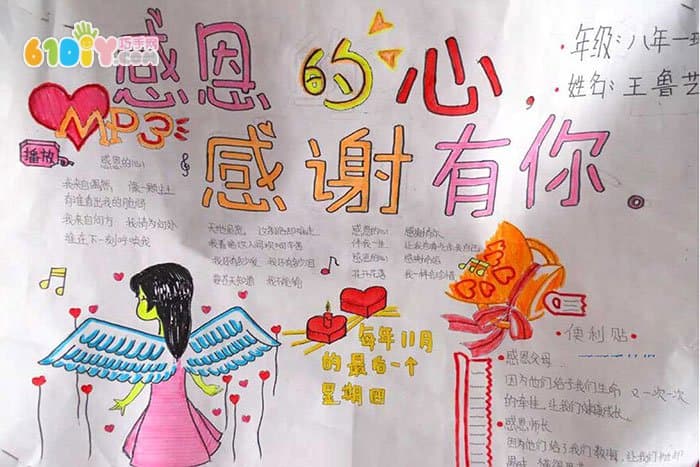 61DIY巧手网
.com
感恩的心,
感谢有你。
·年级:八年一班
·姓名:王鲁艺
MP3
播放
感恩的心
我来自偶然, 像一颗尘土
有谁看出我的脆弱
我来自何方 我情归何处
谁在下一刻呼唤我
天地虽宽, 这条路却难走
我看遍这人间坎坷辛苦
我还有多少爱 我还有多少泪
要苍天知道 我不认输
感恩的心 感谢有你
伴我一生 让我有勇气作我自己
感恩的心 感谢命运
花开花落 我一样会珍惜
每年11月
的最后一个
星期四
·便利贴
·感恩父母
因为他们给予我们生命 又一次一次
的牵挂,让我们健康成长。
·感恩师长
因为他们给了我们教诲,让我们